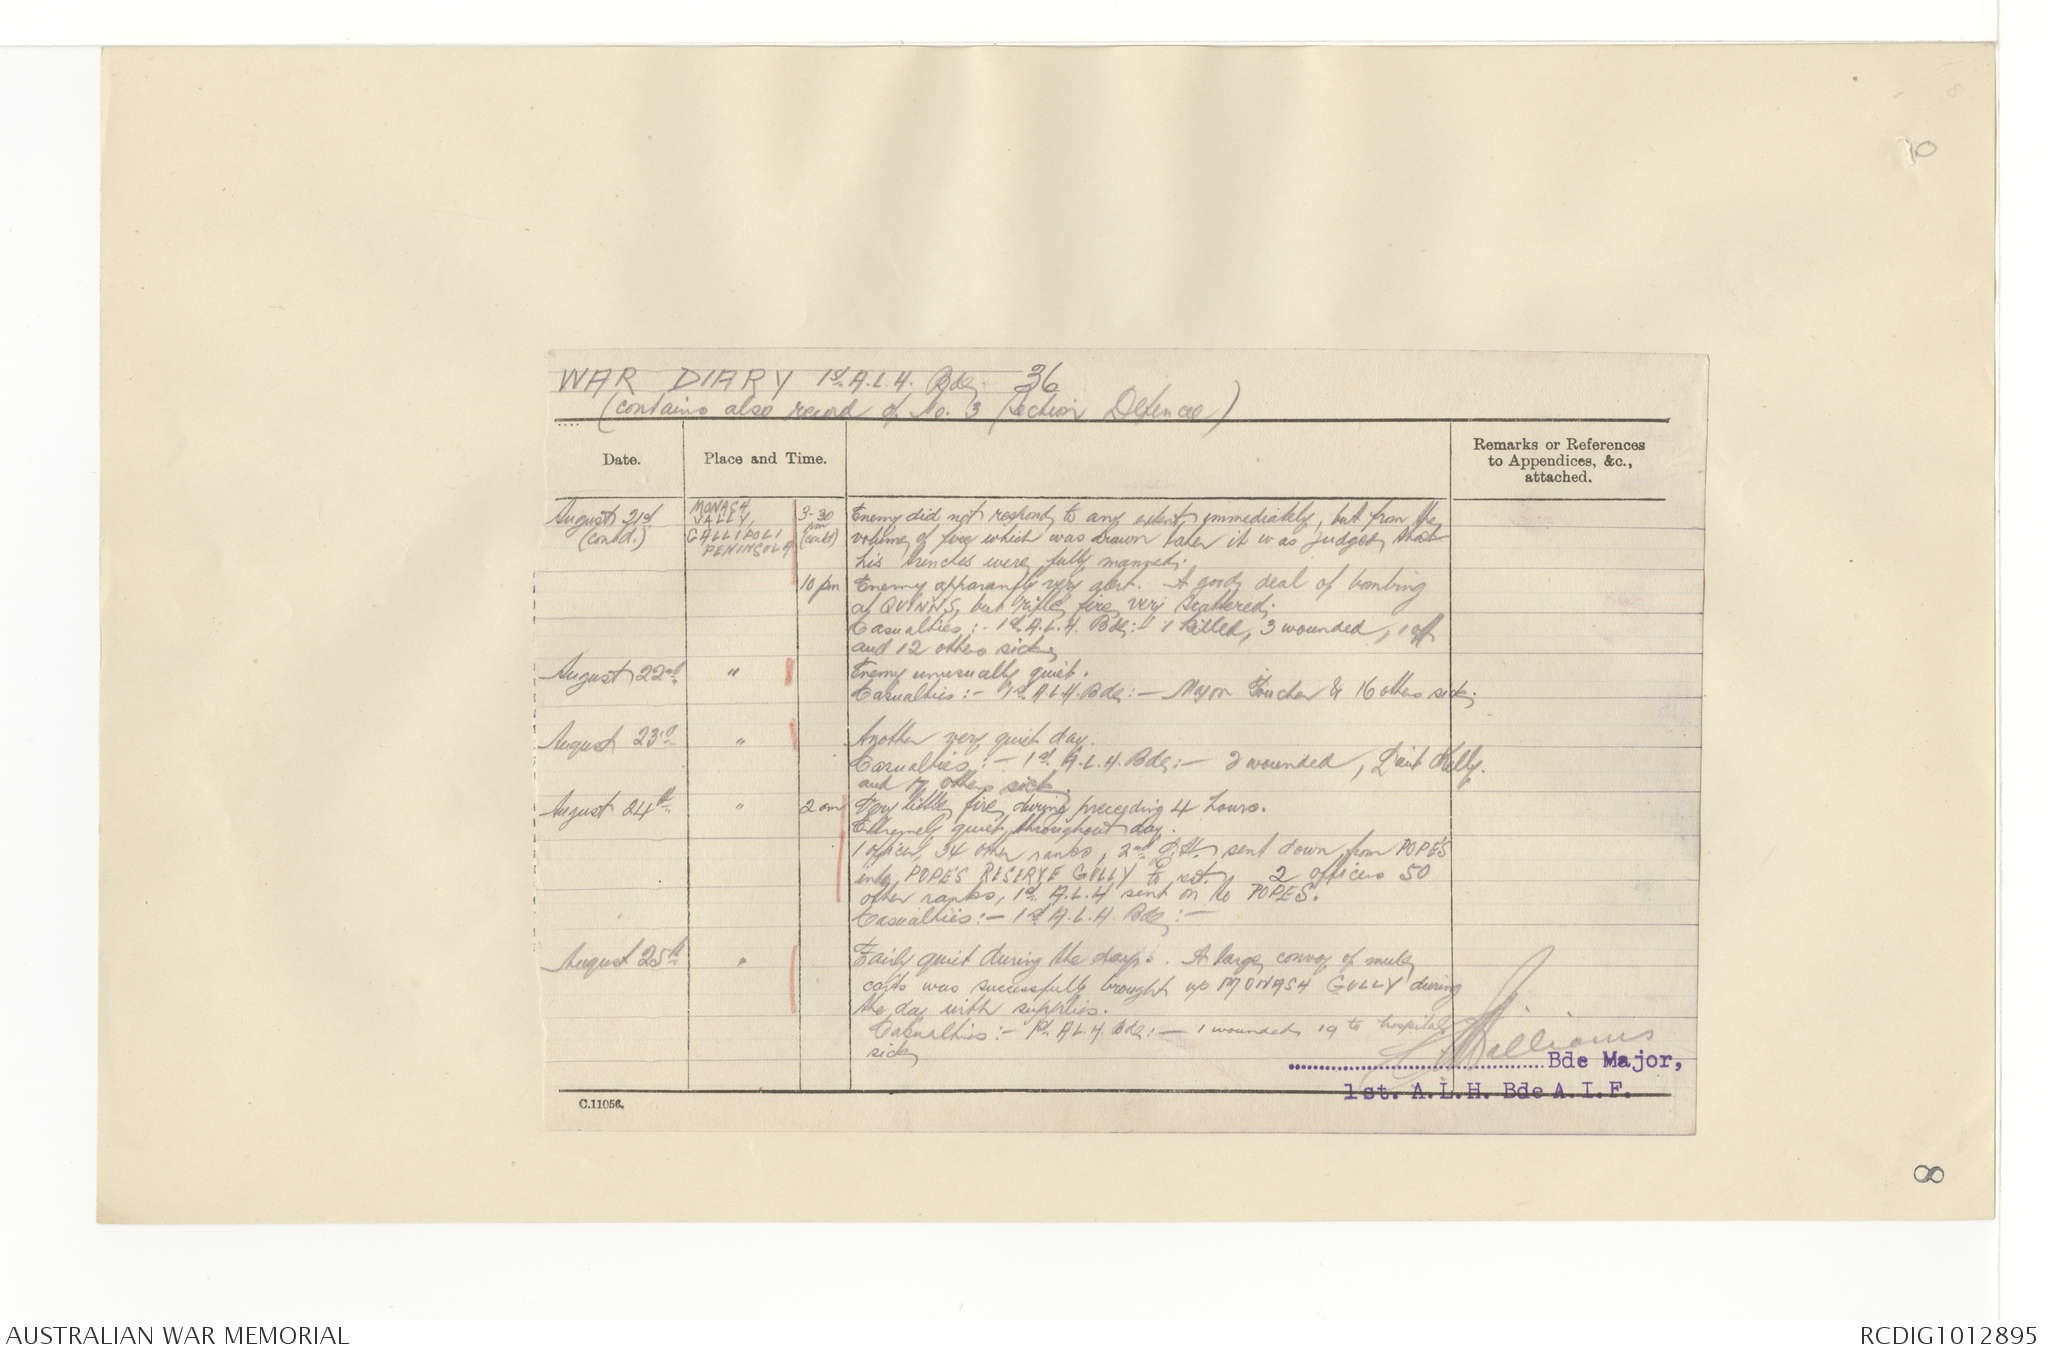 10
WAR DIARY 1st A.L.H. Bde 36
(contains also record of No. 3 Section Defence)
Date.
Place and Time.
Remarks or References
to Appendices, &c.,
attached.
August 21st
(contd.)
MONASH
VALLY,
GALLIPOLI
PENINSULA
3-30
pm
(contd)
Enemy did not respond to any extent immediately, but from the
volume of fire which was drawn later it was judged that
his trenches were fully manned.
10 pm
Enemy apparantly very alert. A good deal of bombing
at QUINNS, but rifle fire very scattered.
Casualties:- 1st A.L.H. Bde:- 1 killed, 3 wounded, 1 off
and 12 others sick
August 22nd
"
Enemy unusually quiet.
Casualties:- 1st A.L.H. Bde:- Major & 16 others sick.
August 23rd
"
Another very quiet day.
Casualties:- 1st A.L.H. Bde:- 2 wounded, Lieut Kelly.
and 17 others sick.
August 24th
"
2 am
Very little fire during preceding 4 hours.
Extremely quiet throughout day.
1 officer, 34 other ranks, 2nd L.H. sent down from POPE'S
into POPE'S RESERVE GULLY to rest. 2 officers 50
other ranks, 1st A.L.H sent on to POPES.
Casualties:- 1st A.L.H. Bde:-
August 25th
"
Fairly quiet during the day. A large convoy of mule
carts was successfully brought up MONASH GULLY during
the day with supplies.
Casualties:- 1st A.L.H. Bde:- 1 wounded 19 to hospital
sick
Williams
Bde Major,
1st. A.L.H. Bde A.I.F.
C.11056.
8
AUSTRALIAN WAR MEMORIAL
RCDIG1012895